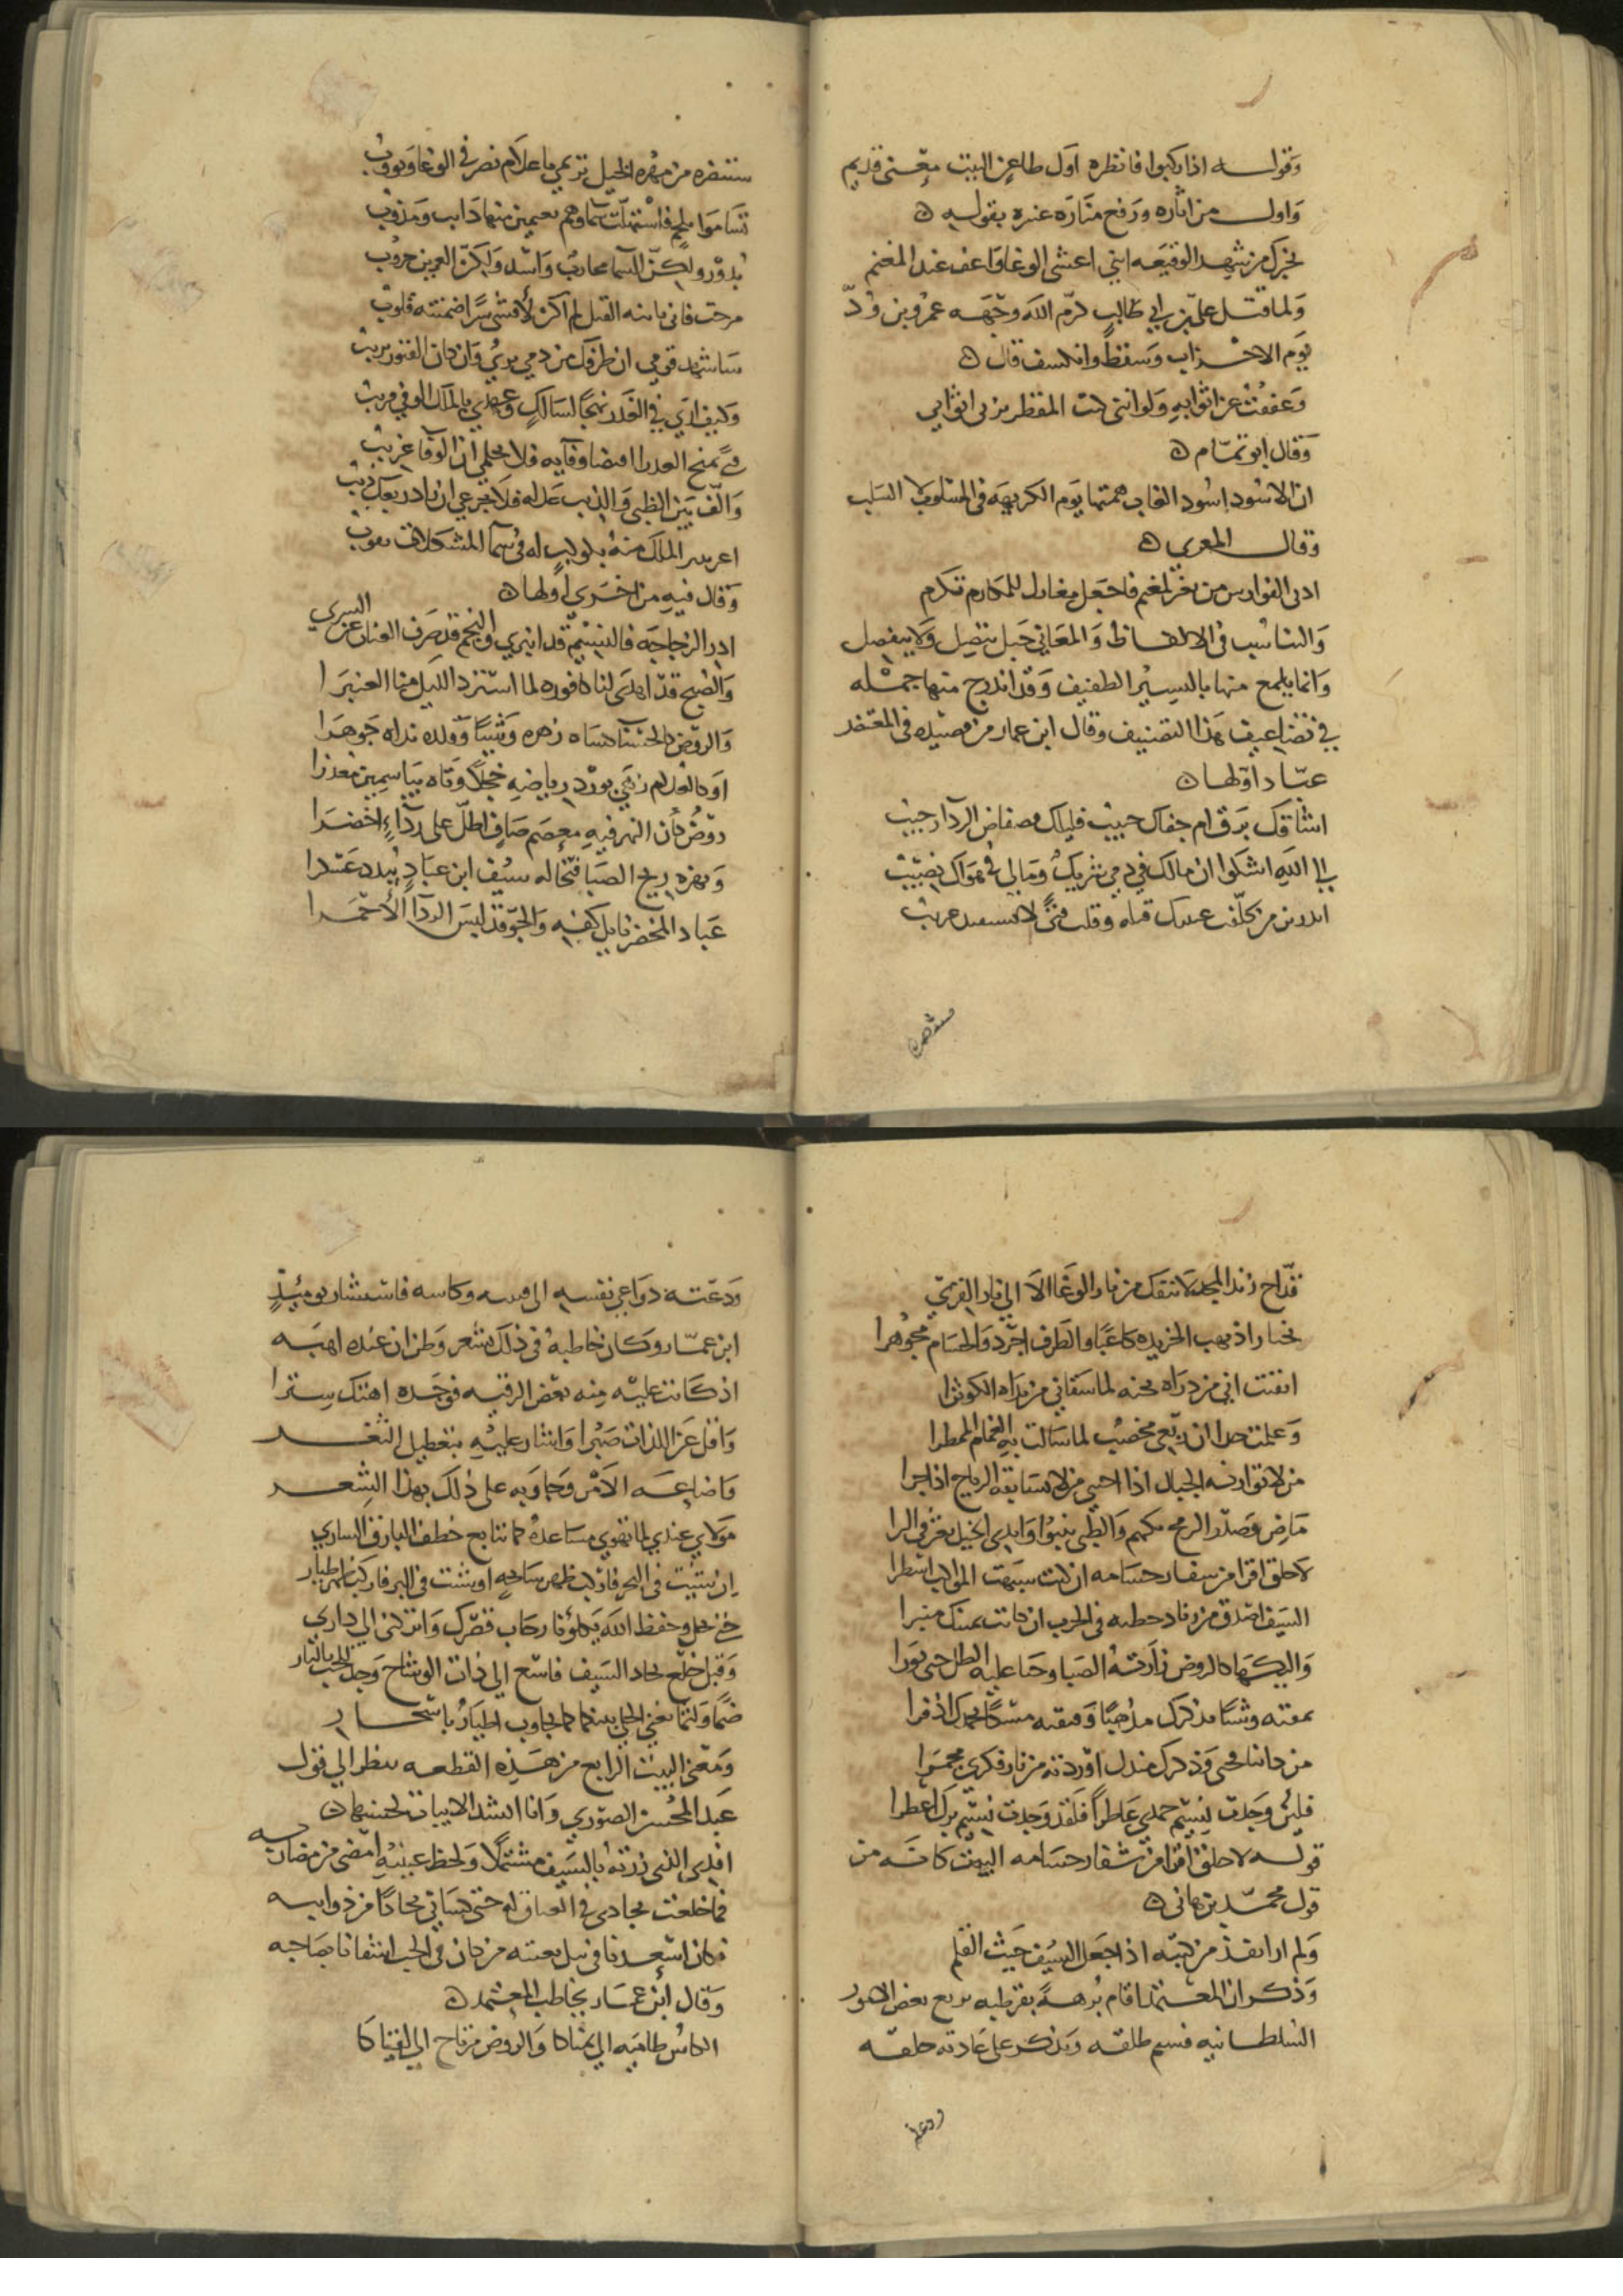 وقوله اذا ركبوا فانظره اول طاعن البيت معنى قديم
واول من اثاره ورفع مناره عنتره بقوله
يخبرك من شهد الوقيعه انني اغشى الوغا واعف عند المغنم
ولما قتل علي بن ابي طالب كرم الله وجهه عمرو بن ودّ
يوم الاحزاب وسقط وانكشف قال
وعففت عن اثوابه ولو انني كنت المقطر بزني اثوابي
وقال ابو تمّام
ان الاسود اسود الغاب همتها يوم الكريهة في المسلوب لا السلب
وقال المعري
ادنى الفوارس من يغر لمغنم فاجعل مغارك للمكارم تكرم
والتناسب في الالفاظ والمعاني حبل يتصل ولا ينفصل
وانما يلمع منها باليسير الطفيف وقد اندرج منها جمله
في تضاعيف هذا التصنيف وقال ابن عمار من قصيده في المعتضد
عبّاد اولها
اشاقك برق ام جفاك حبيب فليلك فضفاض الردآ رحيب
الى الله اشكوا ان مالك في دمي شريك ومالي في هواك نصيب
وقلت فتىً
ستنصره
من مهره الخيل ترتمي باعلام نصر في الوغا وتووب
بدور ولكنّ السما محارب واسد ولكنّ العرين حروب
لم اكن لأفشي سرًا ضمنته قلوب
ساشهد قومي ان طرفك من دمي بريّ وان كان الفتور يريب
وكيف ارى في الغدر نهجًا لسالك وعهدي بالملك الوفي قريب
والّف بين الظبي والذيب عدله فلا تجزعي ان نادر بعل ذيب
وقال فيه من اخرى اولها
ادر الزجاجه فالنسيم قد انبرى والنجم قد صرف العنان عن السرى
والصبح قد اهدى لنا كافوره لما استرد الليل منا العنبرا
والروض كالحسنا كساه زهره وشيًا وقلده نداه جوهرا
او كالغلام زهى بورد رياضه خجلاً وتاه بياسمين معذرا
روض كأن النهر فيه معصم صاف اطلّ على ردآء اخضرا
وتهزه ريح الصبا فتخاله سيف ابن عباد يبدد عسكرا
عباد المخضر نايل كفه والجوّ قد لبس الردآ الأحمرا
قدّاح زند المجد لا ينفك من نار الوغا الا الى نار القرى
يختار اذ يهب الخريده كاعبًا والطرف اجرد والحسام مجوهرا
ايقنت اني من ذراه بجنه لما سقاني من نداه الكوثرا
وعلمت حقا ان ربعي مخصب لما سالت به الغمام الممطرا
من لا توازنه الجبال اذا احتبى من لا تسابقه الرياح اذا جرا
ماض وصدر الرمح يكهم والظبى ينبوا وايدى الخيل تعثر في البرا
لا خلق اقرا من شفار حسامه ان كنت شبهت المواكب اسطرا
السيف اصدق من زياد خطبه في الحرب ان كانت يمينك منبرا
والبكها كالروض زارته الصبا وحنا عليه الطل حتى نورا
نمقته وشيًا بذكرك مذهبًا وفتقته مسكًا بحمدك اذفرا
من ذا ينافحني وذكرك مندل اوردته من نار فكري مجمرا
فلئن وجدت نسيم حمدي عاطرًا فلقد وجدت نسيم برك اعطرا
قوله لا خلق اقرا من شفار حسامه البيت كانه من
قول محمّد بن هانى
ولم ار انفذ من كتبه اذا جعل السيف حيث القلم
وذكر ان المعتمد اقام برهةً بقرطبه يريع بعض الامور
السلطانيه فسئم طلقه وتذكر على عادته خلقه
ودعته
ودعته دواعي نفسه الى قينه وكاسه فاستشار يوميئذٍ
ابن عمّار وكان خاطبه في ذلك بشعر وظن ان عنده اهبه
اذ كانت عليه منه بعض الرقبه فوجده اهتك سترا
واقل عن اللذات صبرا واشار عليه بتعطيل الثغر
واضاعه الامر وجاوبه على ذلك بهذا الشعر
مولاي عندي لما تهوى مساعدة كما تتابع خطف البارق الساري
ان شيت في البحر فاركب ظهر سابحه او شت في البر فاركب ظهر طيار
حتى نحل وحفظ الله يكلؤنا رحاب قصرك واتركني الى داري
وقبل خلع نجاد السيف فاسع الى ذات الوشاح وخذ للحب بالثار
ضمًا ولثمًا يغني الحلي بينكما كما تجاوب اطيار باسحار
ومعنى البيت الرابع من هذه القطعه ينظر الى قول
عبد المحسن الصوري وانا انشد الابيات لحسنها
افدي الذي زرته بالسيف مشتملاً ولحظ عينيه امضى من مضاربه
فما خلعت نجادي في العناق له حتى كساني نجادًا من ذوايبه
فكان اسعدنا في نيل بغيته من كان في الحب اشقانا بصاحبه
وقال ابن عمار يخاطب المعتمد
الكاس ظاميه الى يمناكا والروض مرتاح الى لقياكا